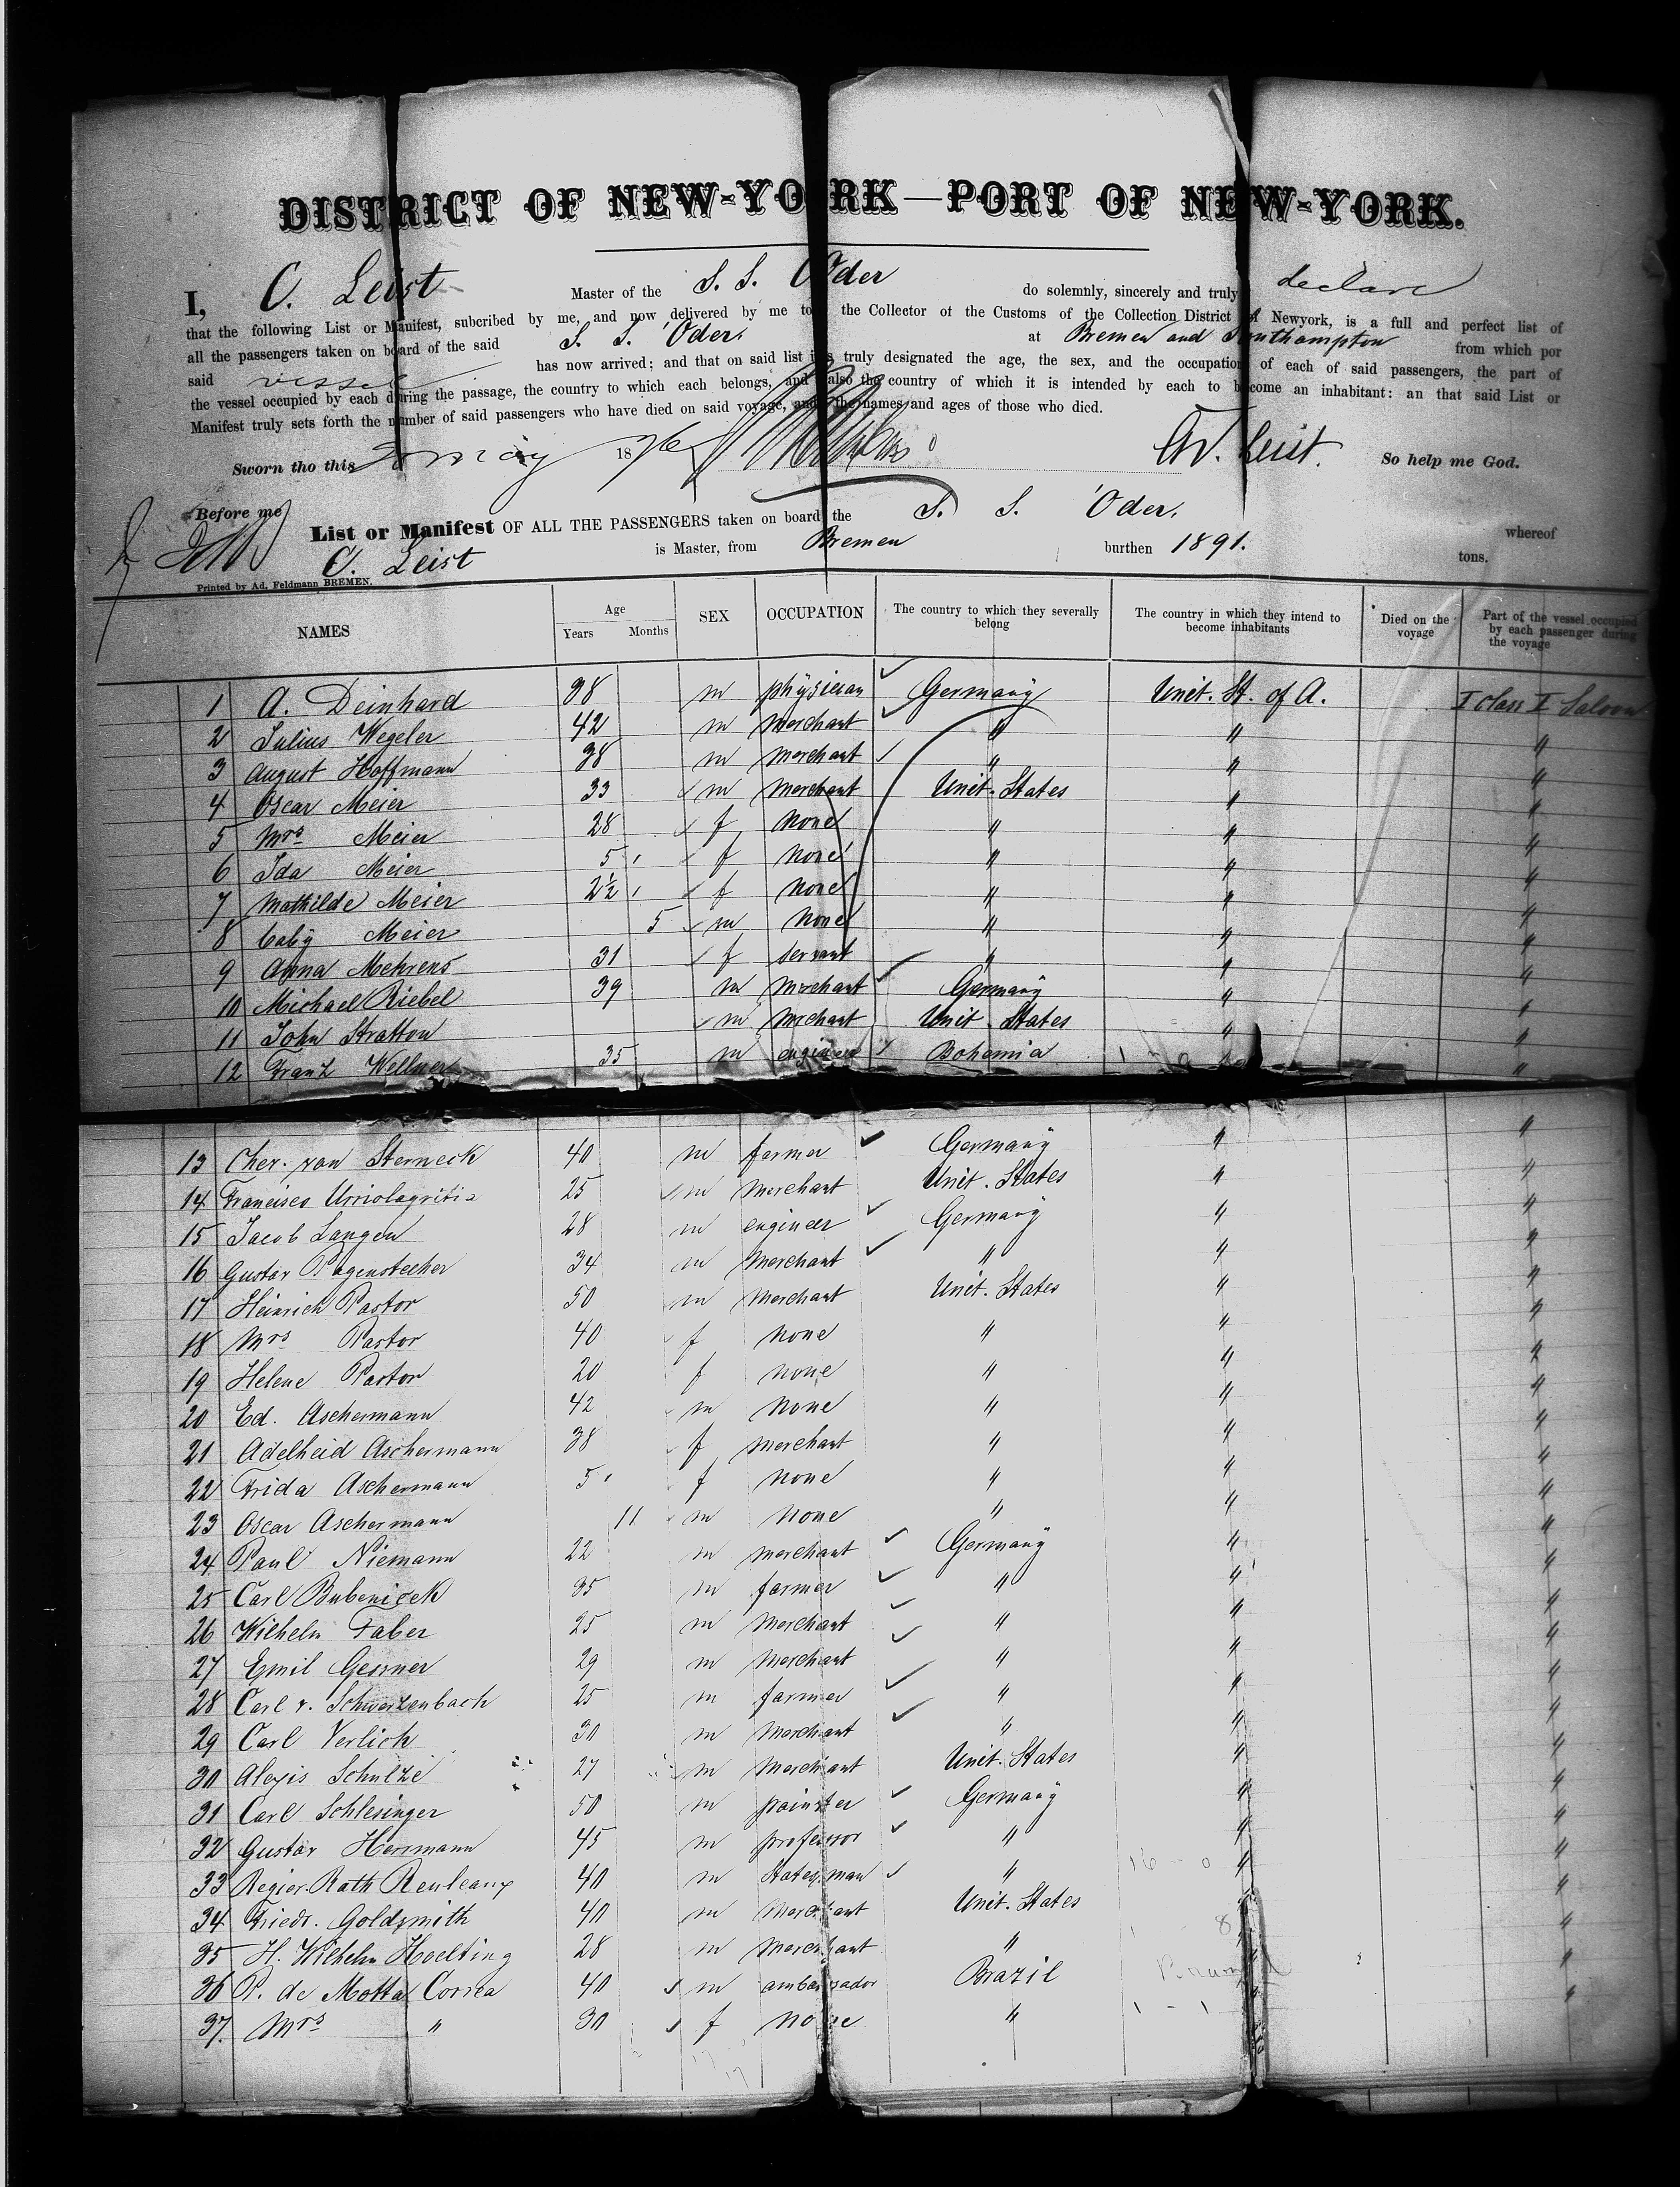 DISTRICT OF NEW-YORK—PORT OF NEW-YORK.
I, C. Leist Master of the S. S. Oder do solemnly, sincerely and truly declare
that the following List or Manifest, subcribed by me, and now delivered by me to the Collector of the Customs of the Collection District of Newyork, is a full and perfect list of
all the passengers taken on board of the said S. S. Oder. at Bremen and Southampton from which por
said vessel has now arrived; and that on said list is truly designated the age, the sex, and the occupation of each of said passengers, the part of
the vessel occupied by each during the passage, the country to which each belongs, and also the country of which it is intended by each to become an inhabitant: an that said List or
Manifest truly sets forth the number of said passengers who have died on said voyage, and the names and ages of those who died.
Sworn tho this May 1876 Leist. So help me God.
Before me
List or Manifest OF ALL THE PASSENGERS taken on board the S. S. Oder. whereof
C. Leist is Master, from Bremen burthen 1891. tons.
Printed by Ad. Feldmann BREMEN.
NAMES Age Years Months SEX OCCUPATION The country to which they severally belong The country in which they intend to become inhabitants Died on the voyage Part of the vessel occupied by each passenger during the voyage
1 A. Deinhard 38 m physician Germany Unit. St. of A. I class I Saloon
2 Julius Wegeler 42 m merchant " " "
3 August Hoffmann 38 m merchant " " "
4 Oscar Meier 33 m merchant Unit. States " "
5 Mrs Meier 28 f none " " "
6 Ida Meier 5 f none " " "
7 Mathilde Meier 2½ f none " " "
8 baby Meier 5 m none " " "
9 Anna Mehrens 31 f servant " " "
10 Michael Riebel 39 m merchant Germany " "
11 John Stratton m merchant Unit. States " "
12 Franz Wellner 35 m engineer Bohemia "
13 Cher. von Sterneck 40 m farmer Germany " "
14 Francisco Urriolagoitia 25 m merchant Unit. States " "
15 Jacob Langen 28 m engineer Germany " "
16 Gustav Pagenstecher 34 m merchant " " "
17 Heinrich Pastor 50 m merchant Unit. States " "
18 Mrs Pastor 40 f none " " "
19 Helene Pastor 20 f none " " "
20 Ed. Aschermann 42 m none " " "
21 Adelheid Aschermann 38 f merchant " " "
22 Frida Aschermann 5 f none " " "
23 Oscar Aschermann 11 m none " " "
24 Paul Niemann 22 m merchant Germany " "
25 Carl Bubenicek 35 m farmer " " "
26 Wilhelm Faber 25 m merchant " " "
27 Emil Gessner 29 m merchant " " "
28 Carl v. Schwarzenbach 25 m farmer " " "
29 Carl Verlich 30 m merchant " " "
30 Alexis Schulze 27 m merchant Unit. States " "
31 Carl Schlesinger 50 m painter Germany " "
32 Gustav Herrmann 45 m professor " " "
33 Regier. Rath Reuleaux 40 m statesman " " "
34 Friedr. Goldsmith 40 m merchant Unit. States "
35 H. Wilhelm Hoelting 28 m merchant " "
36 P. de Motta Correa 40 m ambassador Brazil "
37. Mrs " 30 f none " "